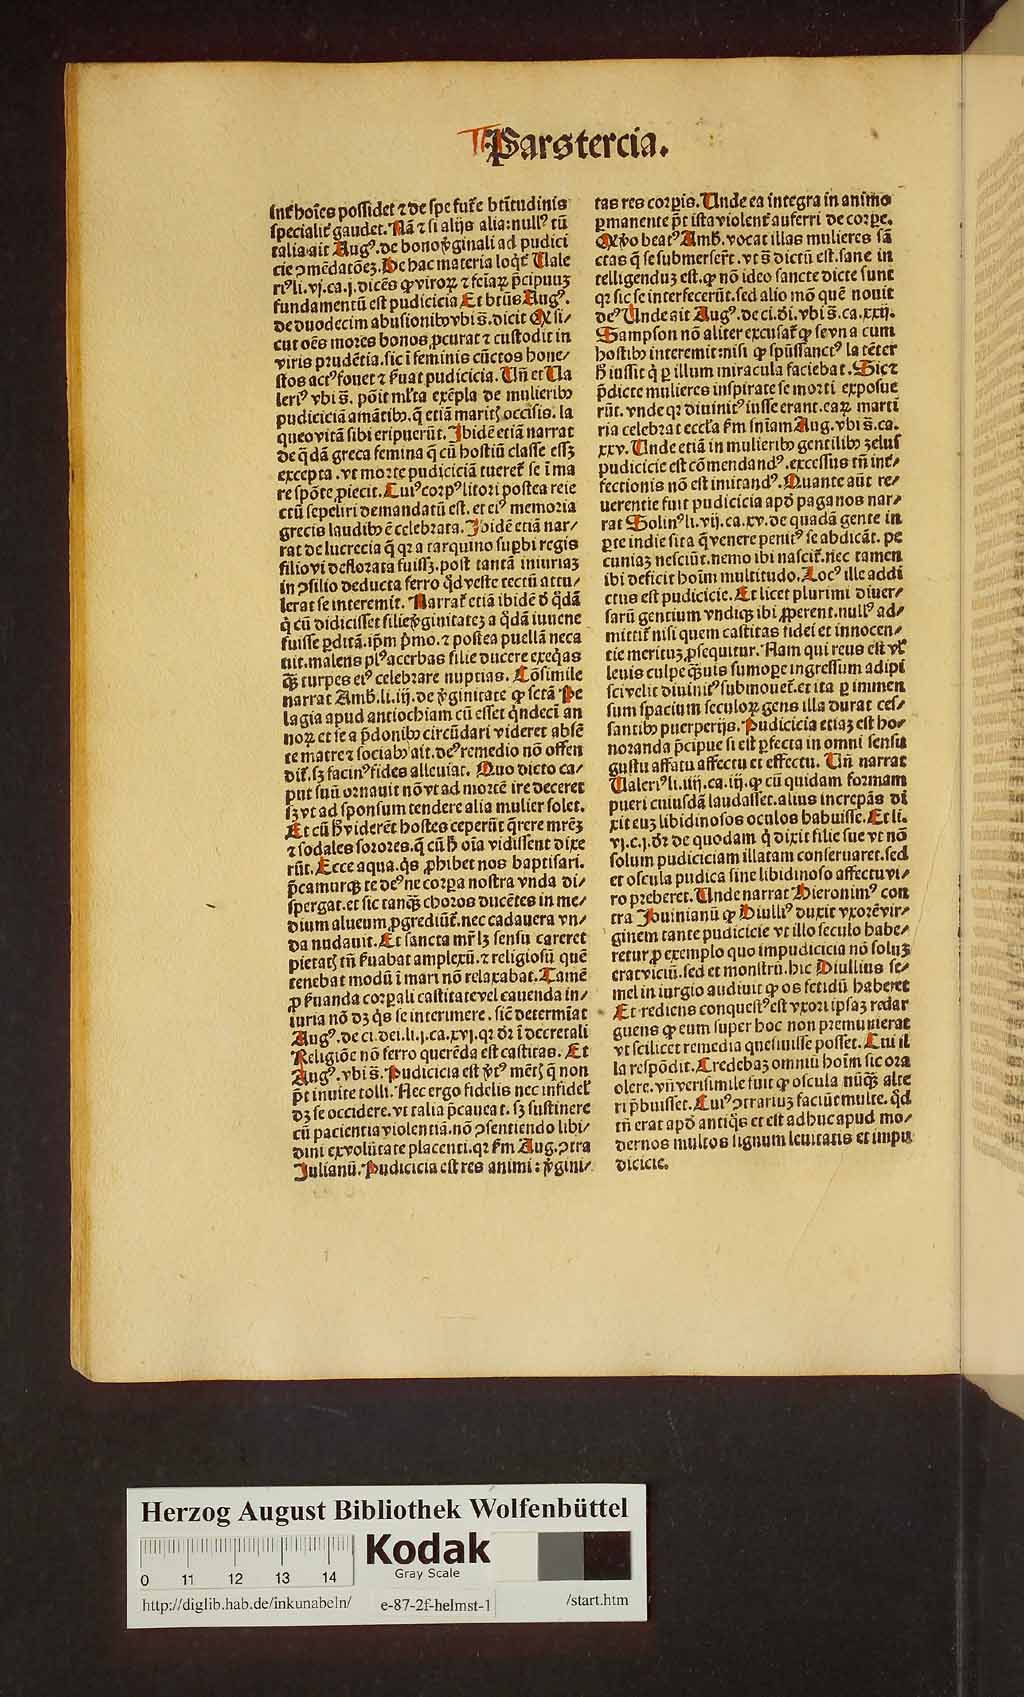 Pars tercia.
int̄ hoīes possidet ⁊ de spe fut̄e btītudinis
specialit̄ gaudet. Nā ⁊ si alijs alia: nullꝰ tū
talia ait Augꝰ. de bono v̓ginali ad pudici
cie ꝯmēdatōeꝫ. De hac materia loqt̄ Uale
riꝰ li. vj. ca. j. dicēs ꝙ viroꝝ ⁊ feīaꝝ p̄cipuuꝫ
fundamentū est pudicicia Et btūs Augꝰ.
de duodecim abusionibꝰ vbi s̄. dicit Ꝙ si⸗
cut oēs mores bonos ꝓcurat ⁊ custodit in
viris prudētia. sic ī feminis cūctos hone⸗
stos actꝰ fouet ⁊ ẜuat pudicicia. Uñ et Ua
leriꝰ vbi s̄. pōit ml̄ta exēpla de mulieribꝰ
pudiciciā amātibꝰ. q̄ etiā maritꝭ occisis. la
queo vitā sibi eripuerūt. Ibidē etiā narrat
de q̄dā greca femina q̄ cū hostiū classe essꝫ
excepta. vt morte pudiciciā tueret̄ se ī ma
re spōte ꝓiecit. Cuiꝰ corpꝰ litori postea reie
ctū sepeliri demandatū est. et eiꝰ memoria
grecis laudibꝰ ē celebrata. Ibidē etiā nar⸗
rat de lucrecia q̄ qꝛ a tarquino suꝑbi regis
filio vi deflorata fuissꝫ. post tantā iniuriaꝫ
in ꝯsilio deducta ferro q̇d veste tectū attu⸗
lerat se interemit. Narrat̄ etiā ibidē d̓ q̇dā
q̇ cū didicisset filie v̓ginitateꝫ a q̇dā iuuene
fuisse ꝑditā. ip̄m p̓mo. ⁊ postea puellā neca
uit. malens plꝰ acerbas filie ducere exeq̇as
qꝫ̄ turpes eiꝰ celebrare nuptias. Cōsimile
narrat Amb̄. li. iij. de v̓ginitate ꝙ sctā Pe
lagia apud antiochiam cū esset q̇ndecī an
noꝝ et se a p̄donibꝰ circūdari videret absē
te matre ⁊ sociabꝰ ait. deꝰ remedio nō offen
dit̄. sꝫ facinꝰ fides alleuiat. Quo dicto ca⸗
put suū ornauit nō vt ad mortē ire deceret
sꝫ vt ad sponsum tendere alia mulier solet.
Et cū h̄ viderēt hostes ceperūt q̄rere mr̄eꝫ
⁊ sodales sorores. q̄ cū h̄ oīa vidissent dixe
rūt. Ecce aqua. q̇s ꝓhibet nos baptisari.
p̄camurqꝫ te deꝰ ne corpa nostra vnda di⸗
spergat. et sic tanqꝫ̄ choros ducētes in me⸗
dium alueum ꝓgrediūt̄. nec cadauera vn⸗
da nudauit. Et sancta mr̄ lꝫ sensu careret
pietatꝭ tñ ẜuabat amplexū. ⁊ religiosū quē
tenebat modū ī mari nō relaxabat. Tamē
ꝓ ẜuanda corꝑali castitate vel cauenda in⸗
iuria nō dꝫ q̇s se interimere. sic̄ determīat
Augꝰ. de ci. dei. li. j. ca. xvj. qꝛ dr̄ ī decretali
Religiōe nō ferro querēda est castitas. Et
Augꝰ. vbi s̄. Pudicicia est v̓tꝰ mētꝭ q̄ non
p̄t inuite tolli. Nec ergo fidelis nec infidel̄
dꝫ se occidere. vt talia p̄caueat. sꝫ sustinere
cū pacientia violentiā. nō ꝯsentiendo libi⸗
dini ex volūtate placenti. qꝛ ẜm Aug. ꝯtra
Julianū. Pudicicia est res animi: v̓gini⸗
tas res corꝑis. Unde ea integra in animo
ꝑmanente p̄t ista violent̄ auferri de corꝑe.
Ꝙ v̓o beatꝰ Amb̄. vocat illas mulieres sā
ctas q̄ se submerser̄t. vt s̄ dictū est. sane in
telligenduꝫ est. ꝙ nō ideo sancte dicte sunt
qꝛ sic se interfecerūt. sed alio mō quē nouit
deꝰ Unde ait Augꝰ. de ci. d̓i. vbi s̄. ca. xxij.
Sampson nō aliter excusat̄ ꝙ se vna cum
hostibꝰ interemit: nisi ꝙ spūssanctꝰ latēter
h̄ iussit q̇ ꝑ illum miracula faciebat. Sic ⁊
p̄dicte mulieres inspirate se morti exposue
rūt. vnde qꝛ diuinitꝰ iusse erant. eaꝝ marti
ria celebrat eccl̄a ẜm sn̄iam Aug. vbi s̄. ca.
xxv. Unde etiā in mulieribꝰ gentilibꝰ zelus
pudicicie est cōmendandꝰ. excessus tñ int̄⸗
fectionis nō est imitandꝰ. Quante aūt re⸗
uerentie fuit pudicicia apd̓ paganos nar⸗
rat Solinꝰ li. vij. ca. xv. de quadā gente in
ꝑte indie sita q̄ venere penitꝰ se abdicāt. pe
cuniaꝫ nesciūt. nemo ibi nascit̄. nec tamen
ibi deficit hoīm multitudo. Locꝰ ille addi
ctus est pudicicie. Et licet plurimi diuer⸗
sarū gentium vndiqꝫ ibi ꝓperent. nullꝰ ad⸗
mittit̄ nisi quem castitas fidei et innocen⸗
tie merituꝫ ꝓsequitur. Nam qui reus est vl̄
leuis culpe qꝫ̄uis sumope ingressum adipi
sci velit diuinitꝰ submouet̄. et ita ꝑ immen
sum spacium seculoꝝ gens illa durat ces⸗
santibꝰ puerperijs. Pudicicia etiaꝫ est ho⸗
noranda p̄cipue si est ꝑfecta in omni sensu
gustu affatu affectu et effectu. Uñ narrat
Ualeriꝰ li. iiij. ca. iij. ꝙ cū quidam formam
pueri cuiusdā laudasset. alius increpās di
xit euꝫ libidinosos oculos habuisse. Et li.
vj. c. j. dr̄ de quodam q̇ dixit filie sue vt nō
solum pudiciciam illatam conseruaret. sed
et oscula pudica sine libidinoso affectu vi⸗
ro preberet. Unde narrat Hieronimꝰ con
tra Jouinianū ꝙ Diulliꝰ duxit vxorē vir⸗
ginem tante pudicicie vt illo seculo habe⸗
retur ꝓ exemplo quo impudicicia nō soluꝫ
erat viciū. sed et monstrū. hic Diullius se⸗
mel in iurgio audiuit ꝙ os fetidū haberet
Et rediens conquestꝰ est vxori ipsaꝫ redar
guens ꝙ eum super hoc non premunierat
vt scilicet remedia quesiuisse posset. Cui il
la respōdit. Credebaꝫ omniū hoīm sic ora
olere. vñ verisimile fuit ꝙ oscula nūqꝫ̄ alte
ri p̄buisset. Cuiꝰ ꝯtrariuꝫ faciūt multe. q̇d
tñ erat apd̓ antiq̇s et est adhuc apud mo⸗
dernos multos signum leuitatis et impu
dicicie.
Herzog August Bibliothek Wolfenbüttel
0 11 12 13 14
Kodak
Gray Scale
http://diglib.hab.de/inkunabeln/ e-87-2f-helmst-1 /start.htm